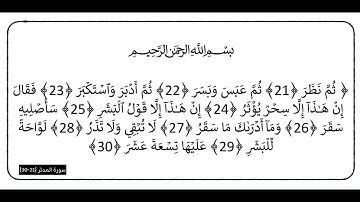 بسم الله الرحمن الرحيم
﴿ ثُمَّ نَظَرَ ﴿21﴾ ثُمَّ عَبَسَ وَبَسَرَ ﴿22﴾ ثُمَّ أَدْبَرَ وَٱسْتَكْبَرَ ﴿23﴾ فَقَالَ
إِنْ هَـٰذَآ إِلَّا سِحْرٌ يُؤْثَرُ ﴿24﴾ إِنْ هَـٰذَآ إِلَّا قَوْلُ ٱلْبَشَرِ ﴿25﴾ سَأُصْلِيهِ
سَقَرَ ﴿26﴾ وَمَآ أَدْرَىٰكَ مَا سَقَرُ ﴿27﴾ لَا تُبْقِي وَلَا تَذَرُ ﴿28﴾ لَوَّاحَةٌ
لِّلْبَشَرِ ﴿29﴾ عَلَيْهَا تِسْعَةَ عَشَرَ ﴿30﴾
سورة المدثر [21-30]